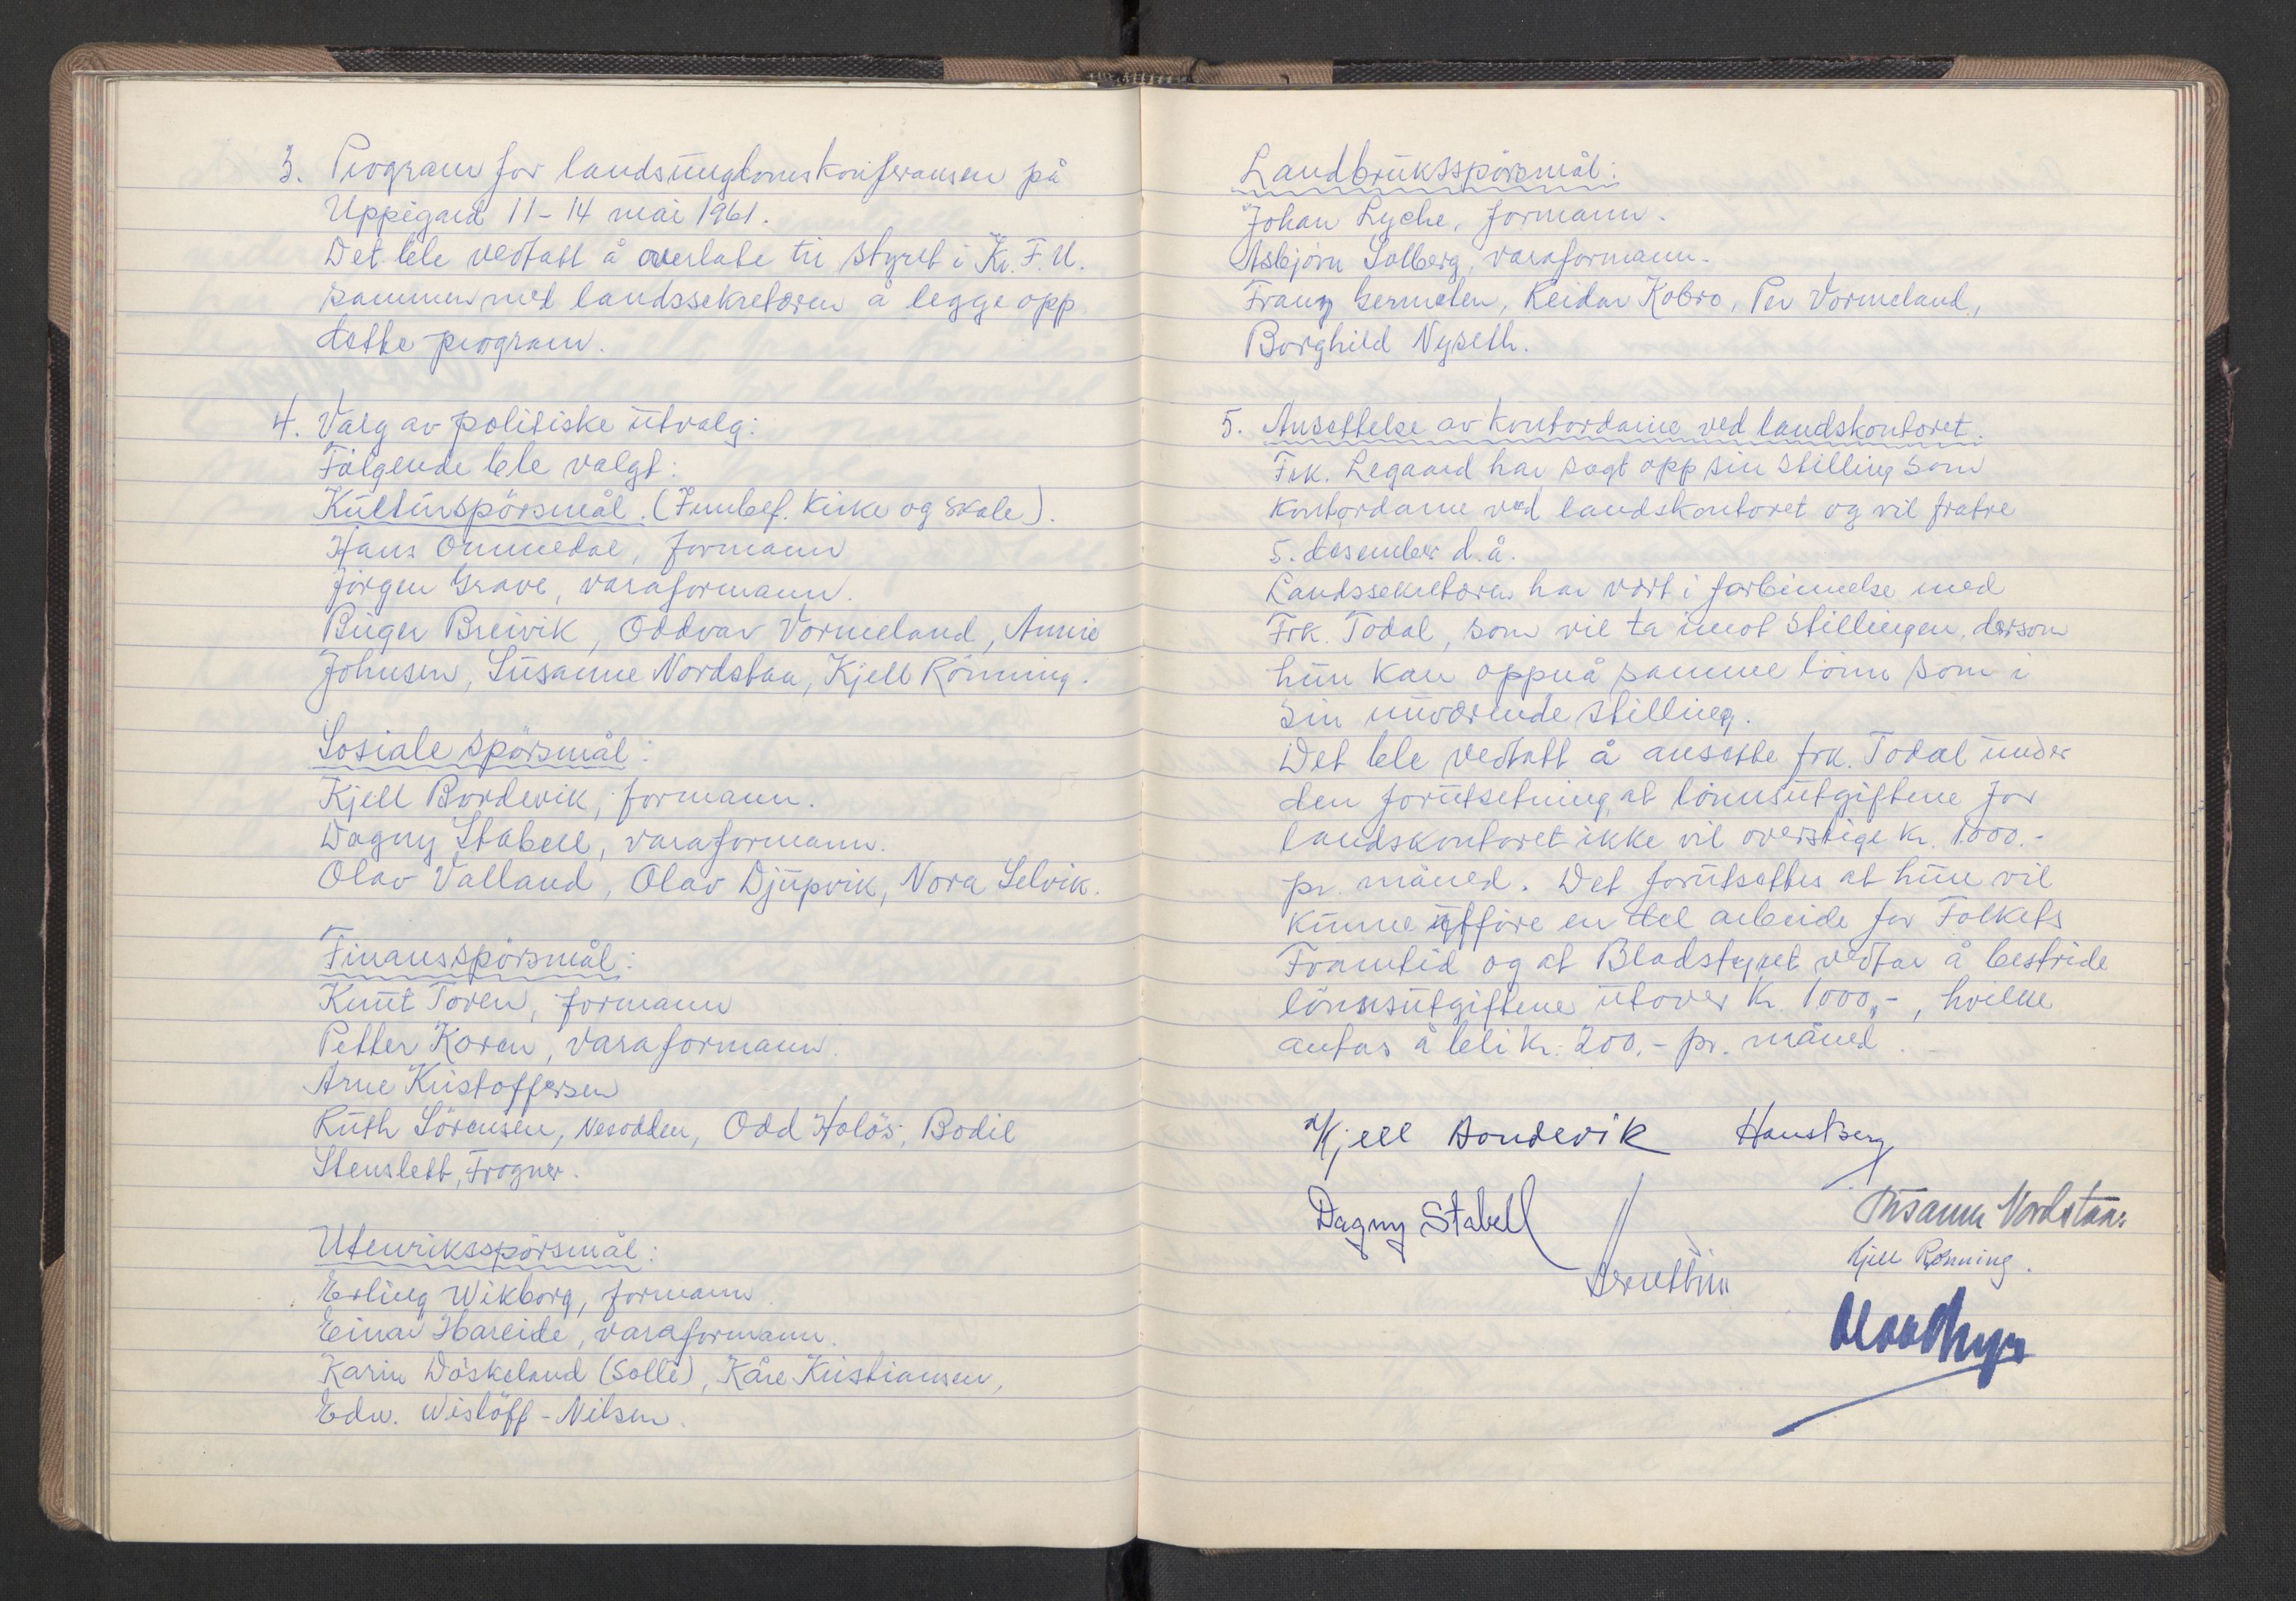 3. Program for landsungdomskonferansen på
Uppigard 11-14 mai 1961.
Det ble vedtatt å overlate til styret i Kr. F. U.
sammen med landssekretæren å legge opp
dette program.
4. Valg av politiske utvalg:
Følgende ble valgt:
Kulturspörsmål. (Innbef. Kirke og skole).
Hans Ommedal, formann
Jörgen Grave, varaformann.
Birger Breivik, Oddvar Vormeland, Annie
Johnsen, Susanne Nordstaa, Kjell Rönning.
Sosiale spörsmål:
Kjell Bondevik, formann.
Dagny Stabell, varaformann.
Olav Valland, Olav Djupvik, Nora Selvik.
Finansspörsmål:
Knut Toven, formann
Petter Koren, varaformann.
Arne Kristoffersen
Ruth Sörensen, Nesodden, Odd Holös, Bodil
Stenslett, Frogner.
Utenriksspörsmål:
Erling Wikborg, formann.
Einar Hareide, varaformann.
Karin Döskeland (Solli), Kåre Kristiansen,
Edw. Wislöff-Nilsen.
Landbruksspörsmål:
Johan Lyche, formann.
Asbjörn Solberg, varaformann.
Franz Germeten, Reidar Kobro, Per Vormeland,
Borghild Nyseth.
5. Ansettelse av kontordame ved landskontoret.
Frk. Legaard har sagt opp sin stilling som
kontordame ved landskontoret og vil fratre
5. desember d.å.
Landssekretæren har vært i forbinnelse med
Frk. Todal, som vil ta imot stillingen, dersom
hun kan oppnå samme lönn som i
sin nuværende stilling.
Det ble vedtatt å ansette frk. Todal under
den forutsetning at lönnsutgiftene for
landskontoret ikke vil overstige kr. 1000.-
pr. måned. Det forutsettes at hun vil
kunne utföre en del arbeide for Folkets
Framtid og at Bladstyret vedtar å bestride
lönnsutgiftene utover kr. 1000,-, hvilke
antas å bli kr. 200.- pr. måned.
Kjell Bondevik Hans Berg
Dagny Stabell
Susanne Nordstaa.
Kjell Rønning.